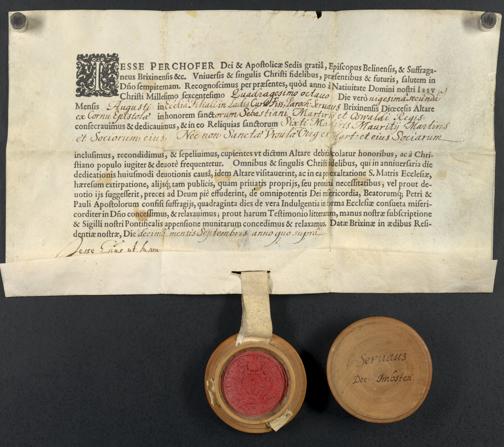 JESSE PERCHOFER Dei & Apostolicæ Sedis gratiâ, Episcopus Belinensis, & Suffraga-
neus Brixinensis &c. Vniversis & singulis Christi fidelibus, præsentibus & futuris, salutem in
Dño sempiternam. Recognoscimus per præsentes, quòd anno à Natiuitate Domini nostri IESV
Christi Millesimo sexcentesimo Quadragesimo octavo Die verò vigesima secunda
Mensis Augusti in Brixinensis Diœcesis Altare
ex Cornu Epistolæ in honorem sanctorum Sebastiani Martiris et Oswaldi Regis
consecrauimus & dedicauimus, & in eo Reliquias sanctorum Sixti Martiris Maurity Martiris
et Sociorum eius Nec non Sanctæ et eius Sociarum
inclusimus, recondidimus, & sepeliuimus, cupientes vt dictum Altare debitè colatur honoribus, ac à Chri-
stiano populo iugiter & deuotè frequentetur. Omnibus & singulis Christi fidelibus, qui in anniuersario die
dedicationis huiusmodi deuotionis causâ, idem Altare visitauerint, ac in ea pro exaltatione S. Matris Ecclesiæ,
hæresum extirpatione, alijsq; tam publicis, quam priuatis proprijs, seu proximi necessitatibus, vel prout de-
uotio ijs suggesserit, preces ad Deum piè effuderint, de omnipotentis Dei misericordia, Beatorumq; Petri &
Pauli Apostolorum confisi suffragijs, quadraginta dies de vera Indulgentia in forma Ecclesiæ consueta miseri-
corditer in Dño concessimus, & relaxauimus; prout harum Testimonio litterarum, manus nostræ subscriptione
& Sigilli nostri Pontificalis appensione munitarum concedimus & relaxamus. Datæ Brixinæ in ædibus Resi-
dentiæ nostræ, Die decima mentis Septembris anno quo supra
Jesse Epûs ut supra
Servaus
Der